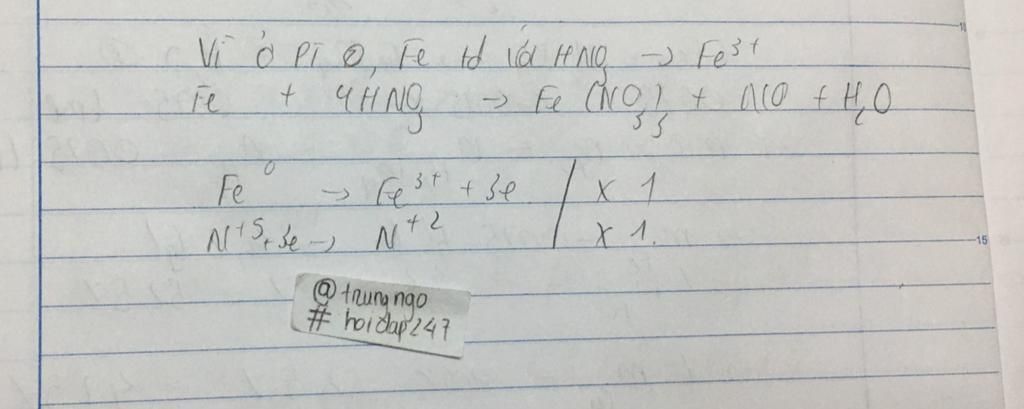 Vì ở PT ①, Fe td với HNO₃ → Fe³⁺
Fe + 4HNO₃ → Fe(NO₃)₃ + NO + H₂O
Fe⁰ → Fe³⁺ + 3e | x 1
N⁺⁵ + 3e → N⁺² | x 1.
@trungngo
# hoidap247
15